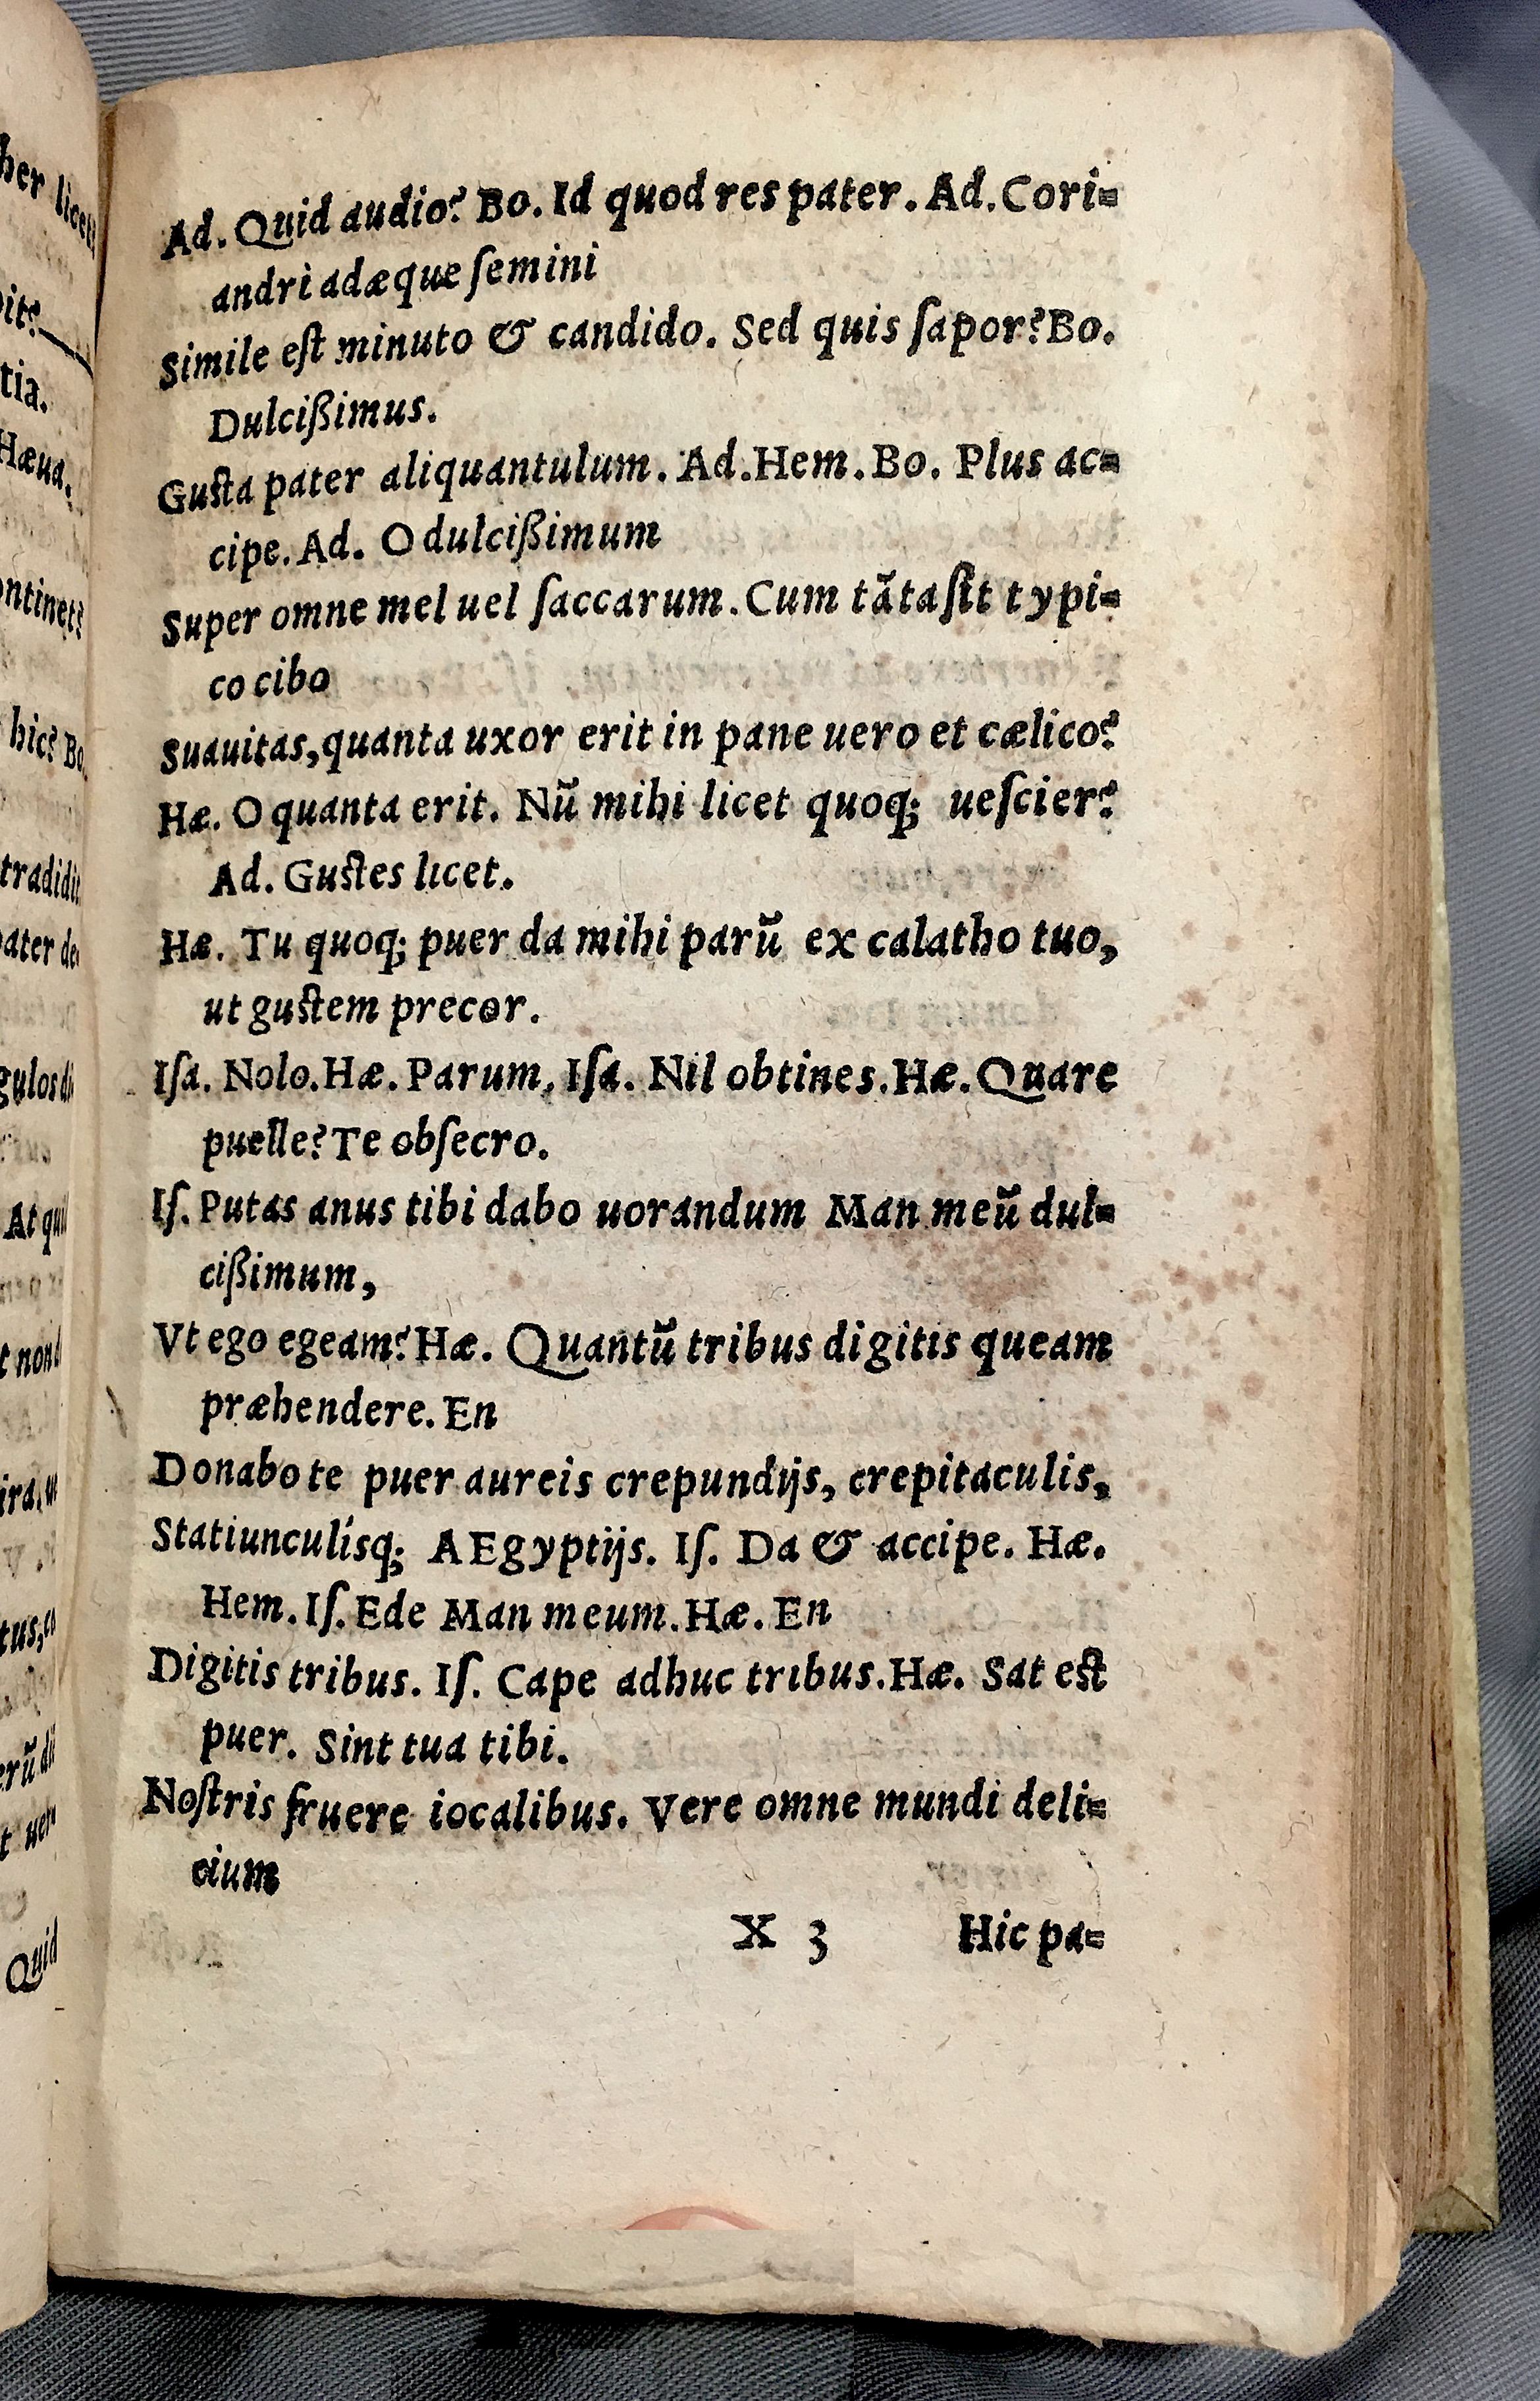 her licet?
Ad. Quid audio? Bo. Id quod res pater. Ad. Cori=
andri adæque ſemini
bit?
Simile eſt minuto & candido. Sed quis ſapor? Bo.
tia.
Dulcißimus.
Hæua.
Guſta pater aliquantulum. Ad. Hem. Bo. Plus ac=
cipe. Ad. O dulcißimum
ontinet?
Super omne mel uel ſaccarum. Cum tãta ſit typi=
co cibo
hic? Bo.
Suauitas, quanta uxor erit in pane uero et cælico?
Hæ. O quanta erit. Nũ mihi licet quoq; ueſcier?
tradidit
Ad. Guſtes licet.
pater de
Hæ. Tu quoq; puer da mihi parũ ex calatho tuo,
ut guſtem precor.
gulos di
Iſa. Nolo. Hæ. Parum, Iſa. Nil obtines. Hæ. Quare
puelle? Te obſecro.
At qui
Iſ. Putas anus tibi dabo uorandum Man meũ dul=
cißimum,
t non
Vt ego egeam? Hæ. Quantũ tribus digitis queam
præhendere. En
ira, ut
Donabo te puer aureis crepundijs, crepitaculis,
Statiunculísq; AEgyptijs. Iſ. Da & accipe. Hæ.
tus, co
Hem. Iſ. Ede Man meum. Hæ. En
Digitis tribus. Iſ. Cape adhuc tribus. Hæ. Sat eſt
erũ di
puer. Sint tua tibi.
t
Noſtris fruere iocalibus. Vere omne mundi deli=
cium
Quid
X 3 Hic pa=